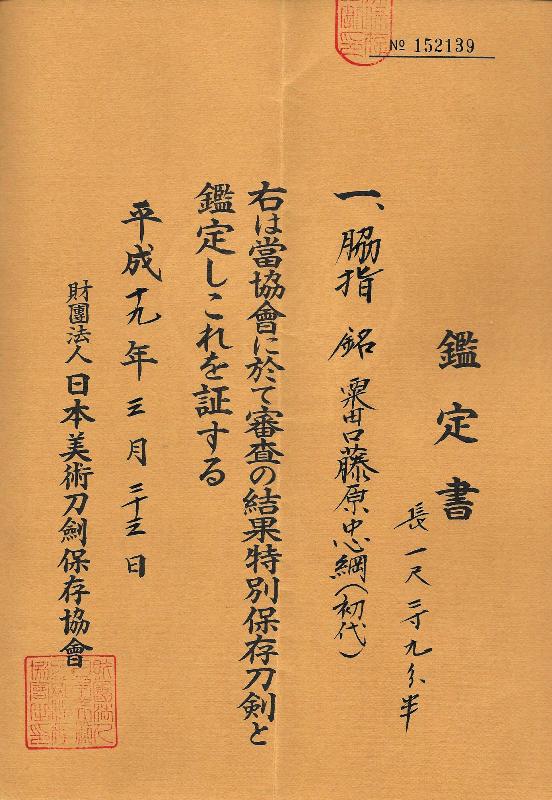 № 152139
鑑定書
長一尺二寸九分半
一、脇指 銘 粟田口藤原忠綱(初代)
右は當協會に於て審査の結果特別保存刀剣と
鑑定しこれを証する
平成十九年三月二十三日
財團法人日本美術刀劍保存協會